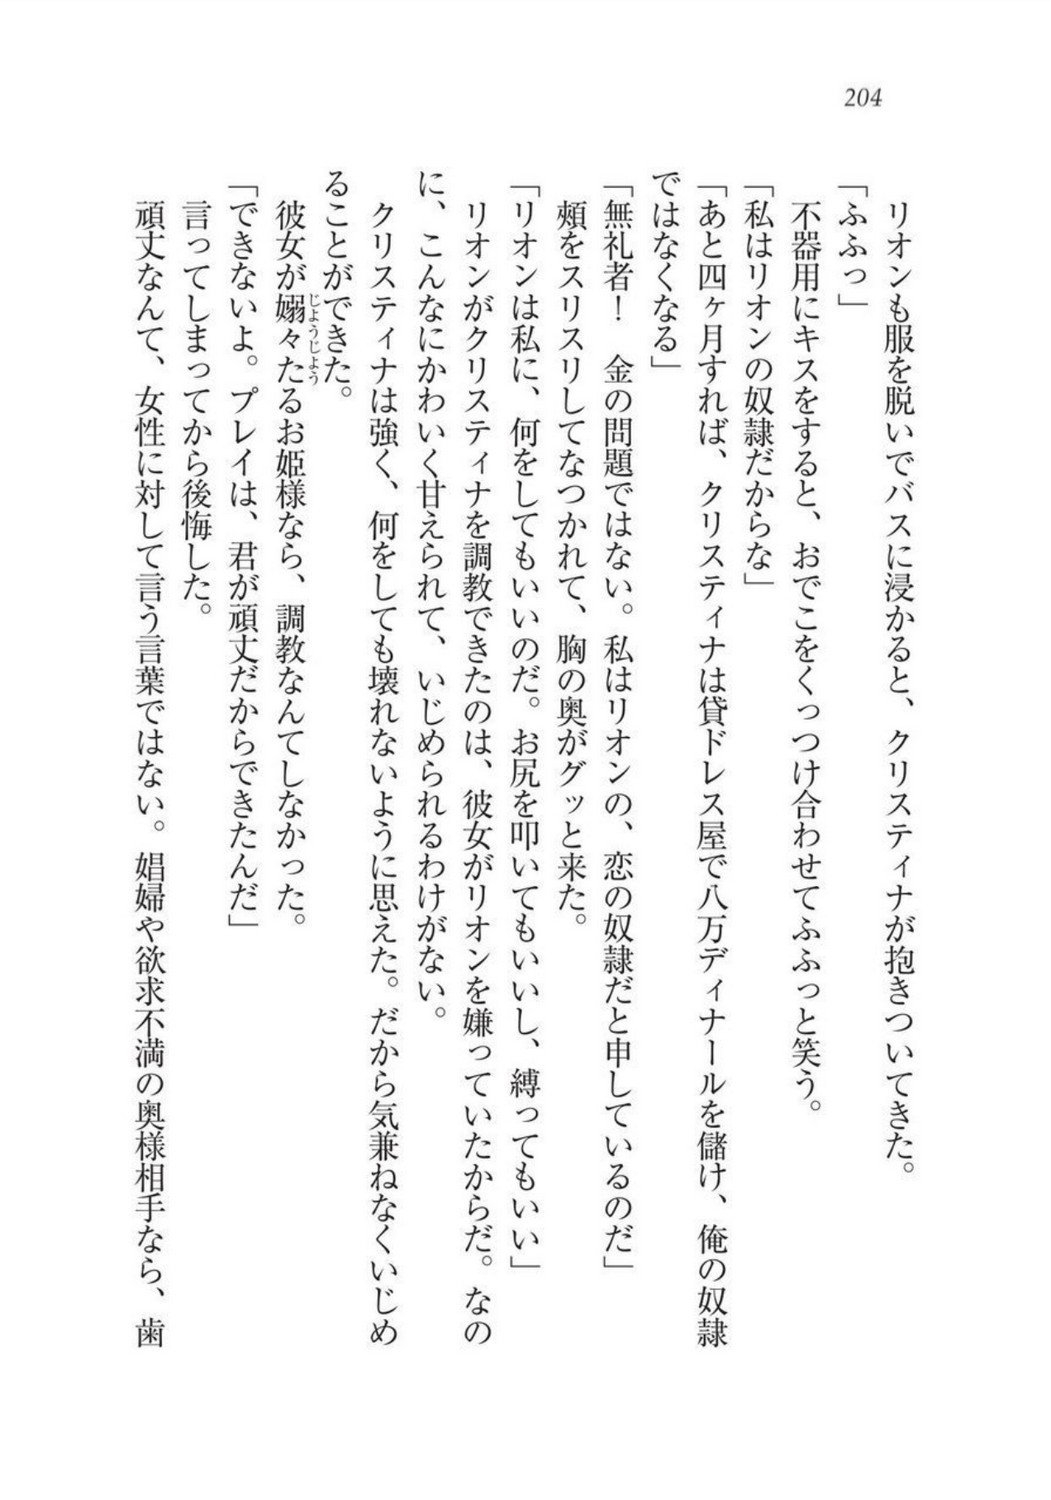 204
リオンも服を脱いでバスに浸かると、クリスティナが抱きついてきた。
「ふふっ」
不器用にキスをすると、おでこをくっつけ合わせてふふっと笑う。
「私はリオンの奴隷だからな」
「あと四ヶ月すれば、クリスティナは貸ドレス屋で八万ディナールを儲け、俺の奴隷
ではなくなる」
「無礼者！　金の問題ではない。私はリオンの、恋の奴隷だと申しているのだ」
頰をスリスリしてなつかれて、胸の奥がグッと来た。
「リオンは私に、何をしてもいいのだ。お尻を叩いてもいいし、縛ってもいい」
リオンがクリスティナを調教できたのは、彼女がリオンを嫌っていたからだ。なの
に、こんなにかわいく甘えられて、いじめられるわけがない。
クリスティナは強く、何をしても壊れないように思えた。だから気兼ねなくいじめ
ることができた。
彼女が嫋々たるお姫様なら、調教なんてしなかった。
じょうじょう
「できないよ。プレイは、君が頑丈だからできたんだ」
言ってしまってから後悔した。
頑丈なんて、女性に対して言う言葉ではない。娼婦や欲求不満の奥様相手なら、歯